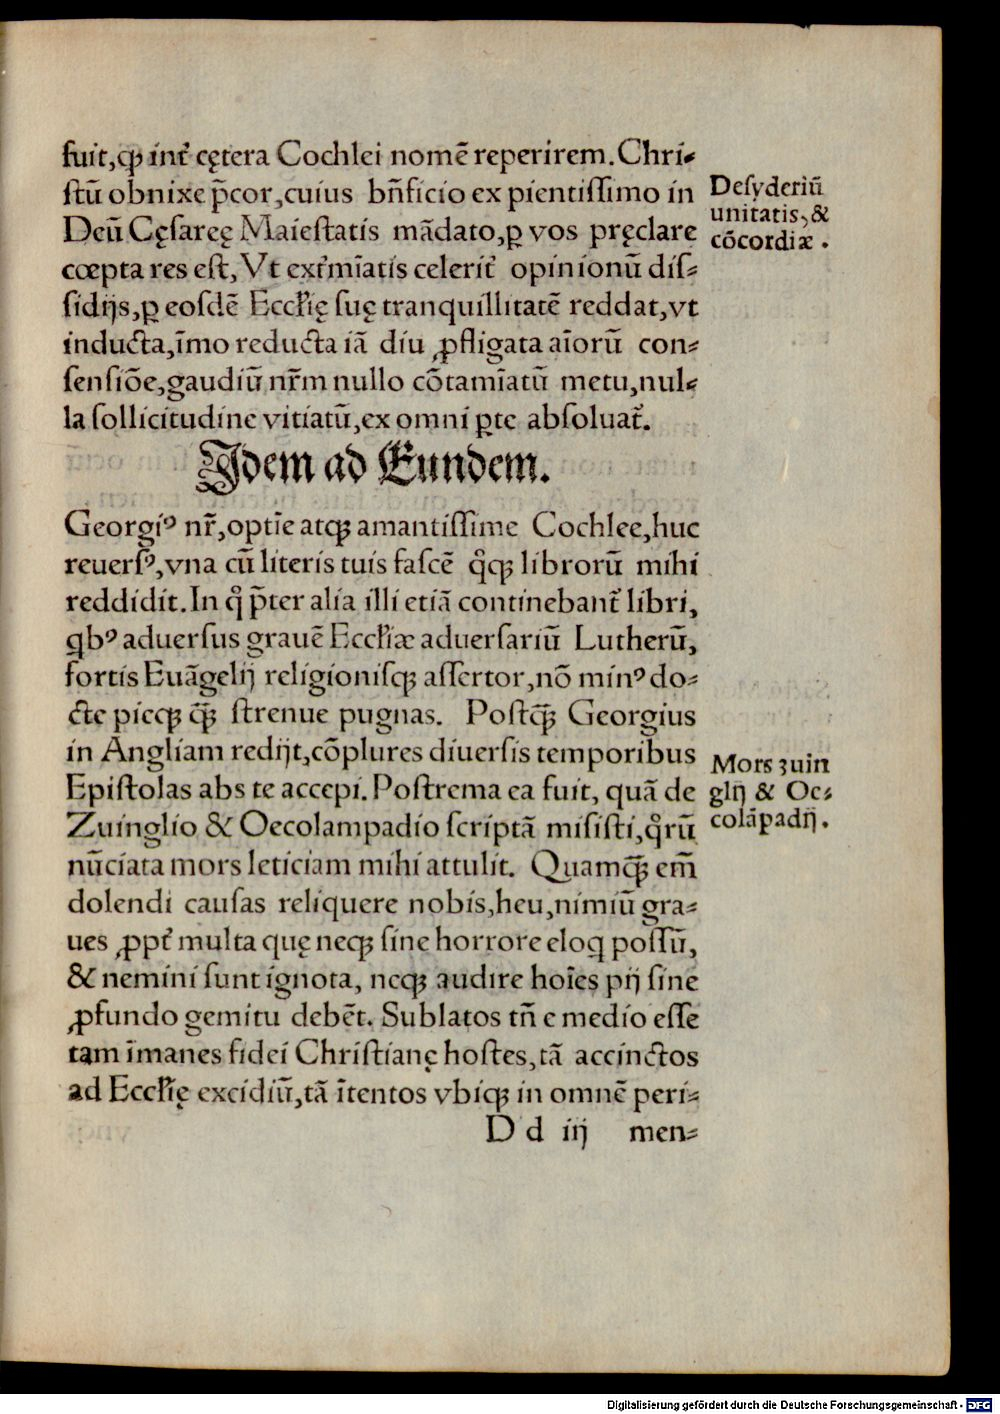 fuit,ꝙ int̃ cętera Cochlei nomẽ reperirem. Chri⸗
ſtũ obnixe p̃cor, cuius bñficio ex pientiſſimo in
Deũ Cęſareę Maieſtatis mãdato, ꝑ vos pręclare
cœpta res eſt, Vt ext̃mĩatis celerit̃ opinionũ diſ⸗
ſidijs, ꝑ eoſdẽ Eccľię ſuę tranquillitatẽ reddat, vt
inducta, ĩmo reducta iã diu ꝓfligata aĩorũ con⸗
ſenſiõe, gaudiũ nr̃m nullo cõtamĩatũ metu, nul⸗
la ſollicitudine vitiatũ, ex omni ꝑte abſoluat̃.
Deſyderiũ
unitatis, &
cõcordiæ.
Idem ad Eundem.
Georgiꝰ nr̃, optĩe atqꝫ amantiſſime Cochlee, huc
reuerſꝰ, vna cũ literis tuis faſcẽ qͦqꝫ librorũ mihi
reddidit. In qͦ p̃ter alia illi etiã continebant̃ libri,
ꝗbꝰ aduerſus grauẽ Eccľiæ aduerſariũ Lutherũ,
fortis Euãgelij religioniſqꝫ aſſertor, nõ minꝰ do⸗
cte pieqꝫ qꝫ̃ ſtrenue pugnas. Poſtqꝫ̃ Georgius
in Angliam redijt, cõplures diuerſis temporibus
Epiſtolas abs te accepi. Poſtrema ea fuit, quã de
Zuinglio & Oecolampadio ſcriptã miſiſti, qͦrũ
nũciata mors leticiam mihi attulit. Quamqꝫ̃ em̃
dolendi cauſas reliquere nobis, heu, nimiũ gra⸗
ues ꝓpt̃ multa quę neqꝫ ſine horrore eloꝗ poſſũ,
& nemini ſunt ignota, neqꝫ audire hoĩes pij ſine
ꝓfundo gemitu debẽt. Sublatos tñ e medio eſſe
tam ĩmanes fidei Chriſtianę hoſtes, tã accinctos
ad Eccľię excidiũ, tã ĩtentos vbiqꝫ in omnẽ peri⸗
Mors zuin
glij & Oc⸗
colãpadij.
D d iij men⸗
Digitalisierung gefördert durch die Deutsche Forschungsgemeinschaft - DFG